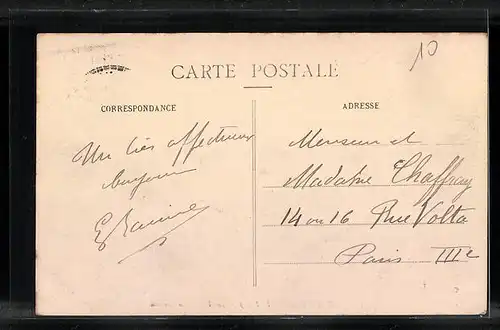 10
CARTE POSTALE
CORRESPONDANCE
ADRESSE
Un très affectueux
bonjour
Monsieur et
Madame Chaffray
14 ou 16 Rue Volta
Paris IIIe